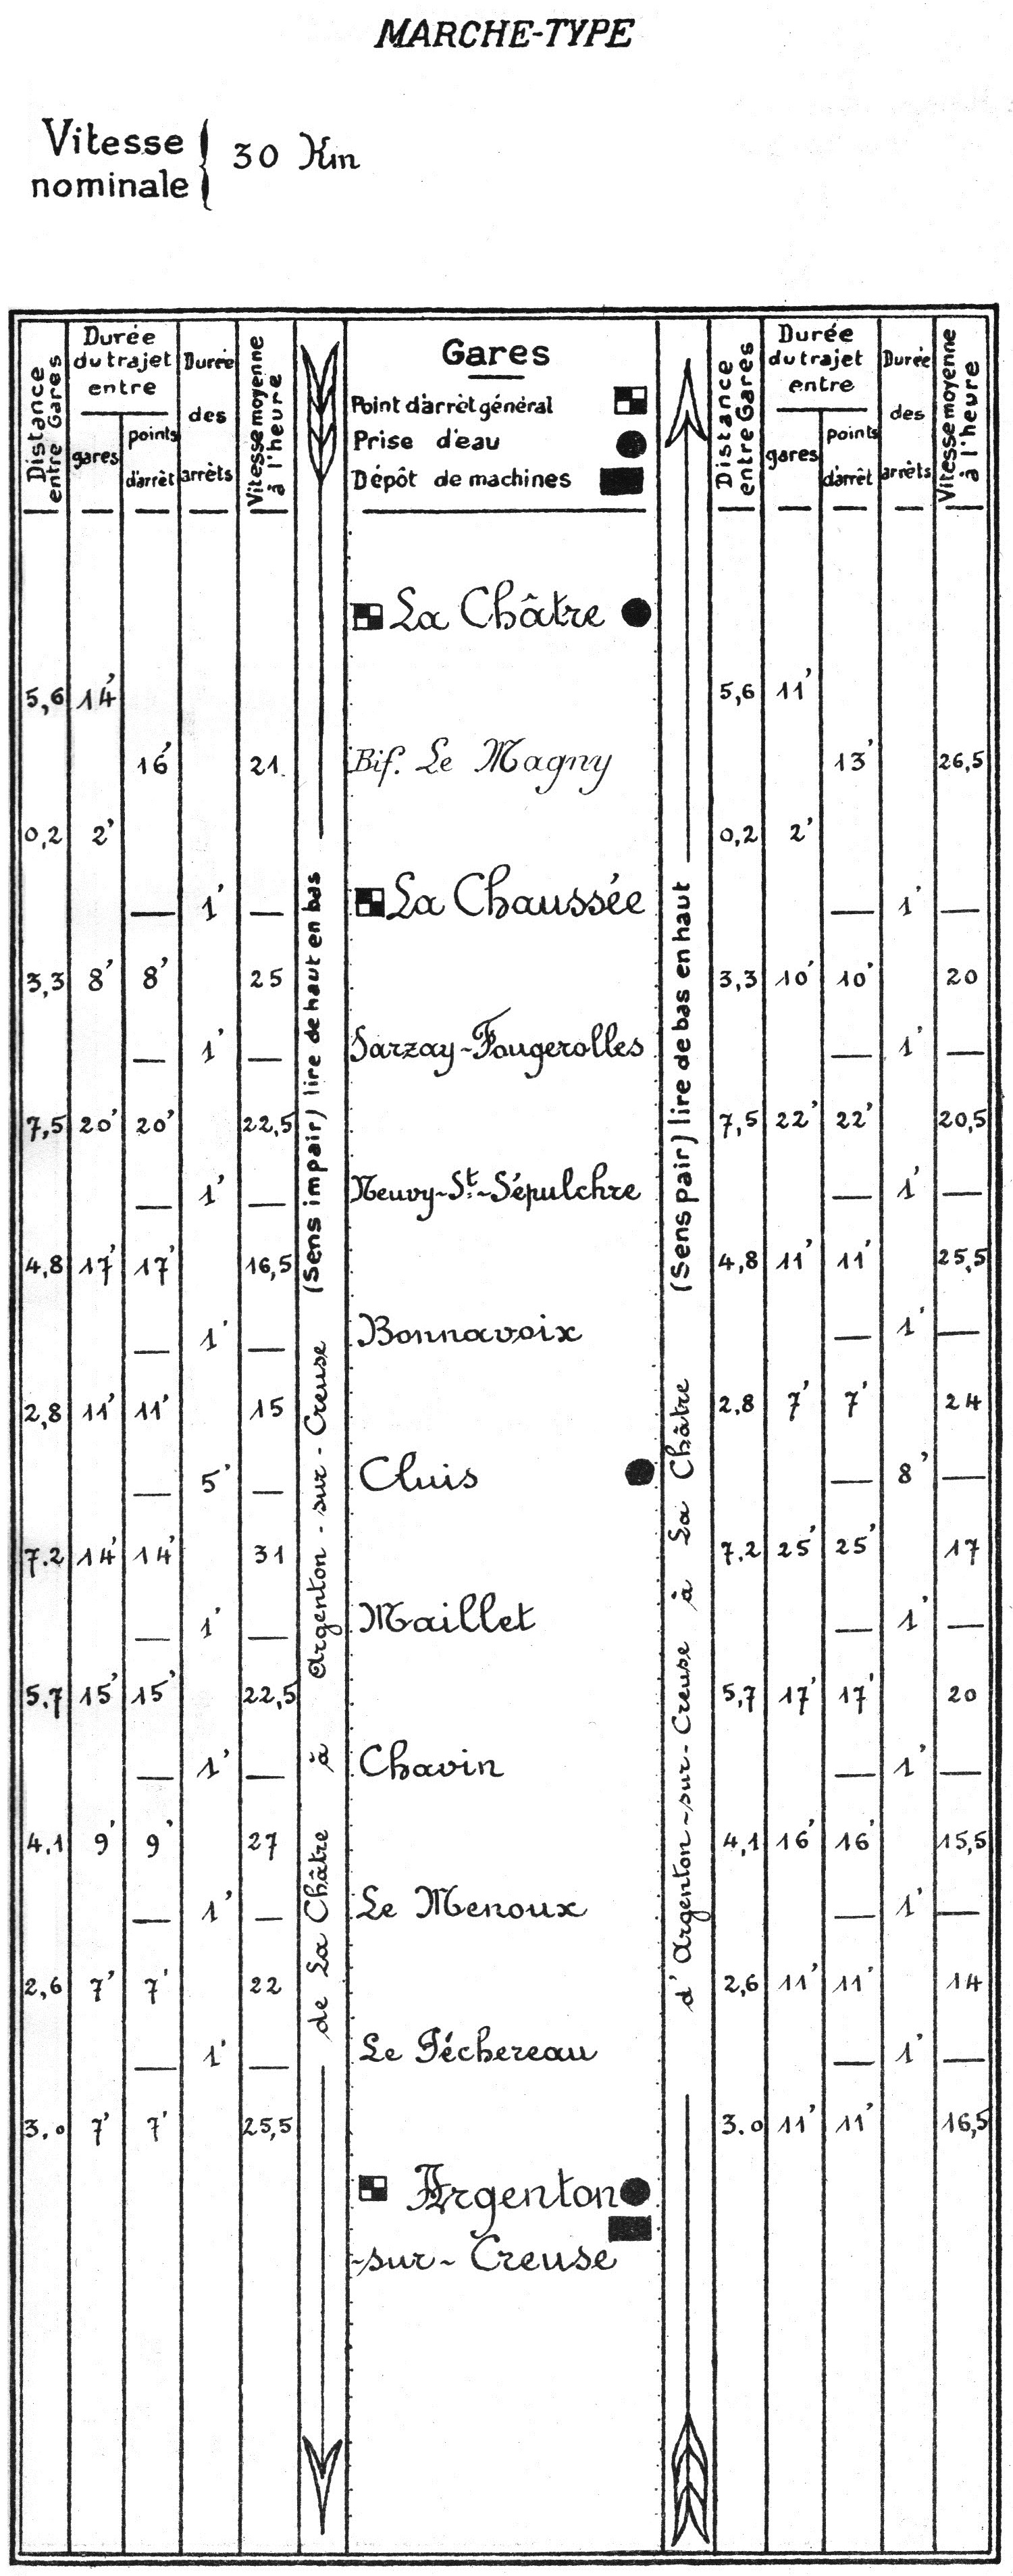 MARCHE-TYPE
Vitesse
nominale
30 Km
Distance
entre Gares
Durée
du trajet
entre
gares
points
d'arrêt
Durée
des
arrêts
Vitesse moyenne
à l'heure
Gares
Point d'arrêt général
Prise d'eau
Dépôt de machines
Distance
entre Gares
Durée
du trajet
entre
gares
points
d'arrêt
Durée
des
arrêts
Vitesse moyenne
à l'heure
de La Châtre à Argenton-sur-Creuse (Sens impair) lire de haut en bas
d'Argenton-sur-Creuse à La Châtre (Sens pair) lire de bas en haut
La Châtre
5,6 14' 5,6 11'
16' 21 Bif. Le Magny 13' 26,5
0,2 2' 0,2 2'
— 1' — La Chaussée — 1' —
3,3 8' 8' 25 3,3 10' 10' 20
— 1' — Sarzay-Fougerolles — 1' —
7,5 20' 20' 22,5 7,5 22' 22' 20,5
— 1' — Neuvy-St.-Sépulchre — 1' —
4,8 17' 17' 16,5 4,8 11' 11' 25,5
— 1' — Bonnavoix — 1' —
2,8 11' 11' 15 2,8 7' 7' 24
— 5' — Cluis — 8' —
7.2 14' 14' 31 7.2 25' 25' 17
— 1' — Maillet — 1' —
5.7 15' 15' 22,5 5,7 17' 17' 20
— 1' — Chavin — 1' —
4,1 9' 9' 27 4,1 16' 16' 15,5
— 1' — Le Menoux — 1' —
2,6 7' 7' 22 2,6 11' 11' 14
— 1' — Le Péchereau — 1' —
3.0 7' 7' 25,5 3.0 11' 11' 16,5
Argenton
-sur- Creuse